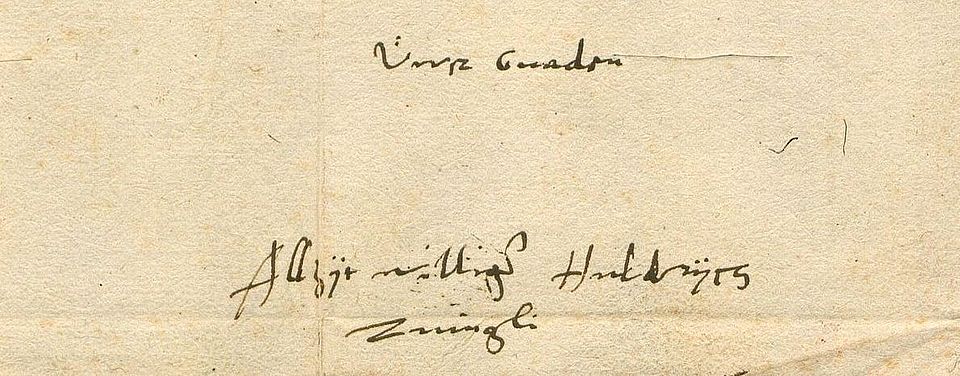 Üwr Gnaden
Allzyt williger Huldrych
Zuingli